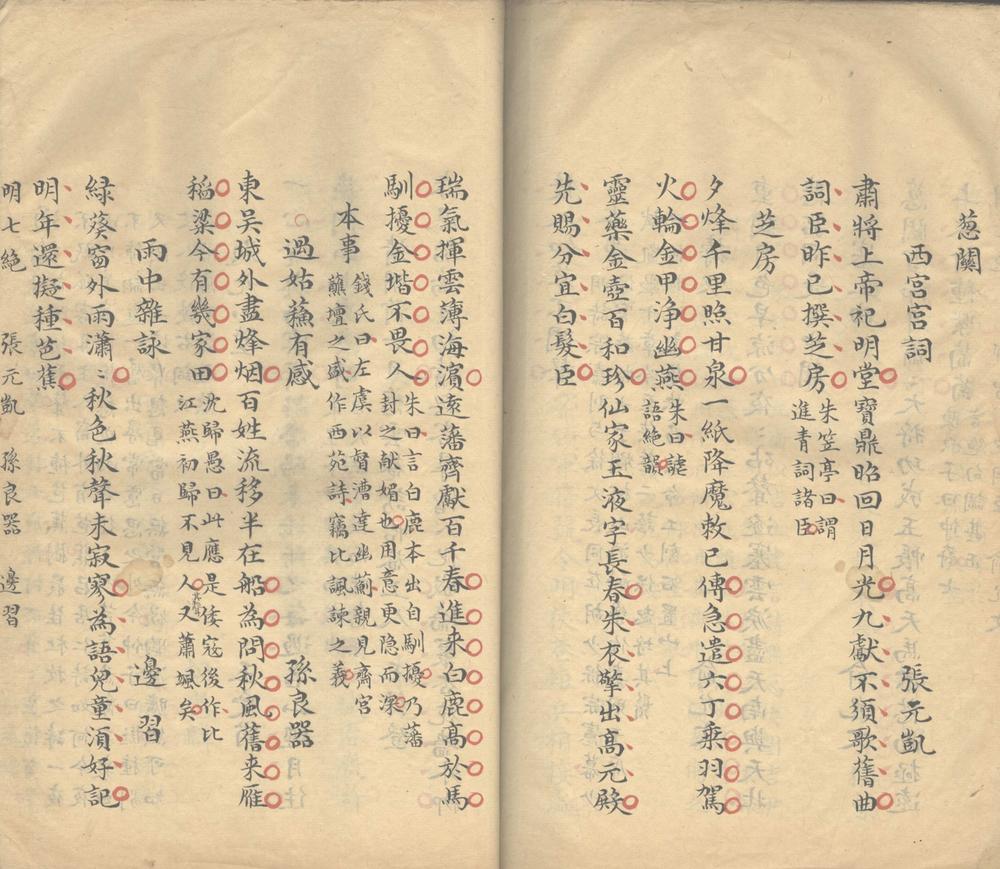 葱關
西宮宮詞 張元凱
肅將上帝祀明堂寶鼎昭回日月光九獻不須歌舊曲
詞臣昨已撰芝房朱笠亭曰謂進青詞諸臣
芝房
夕烽千里照甘泉一紙降魔敕已傳急遣六丁乘羽駕
火輪金甲淨幽燕朱曰謔語絶韻
靈藥金壺百和珍仙家玉液字長春朱衣擎出高元殿
先賜分宜白髮臣
瑞氣揮雲薄海濱遠藩齊獻百千春進来白鹿高於馬
馴擾金堦不畏人朱曰言白鹿本出自馴擾乃藩封之献媚也用意更隐而深
本事 錢氏曰左虞以督漕達幽薊親見齋宮蘸壇之盛作西苑詩竊比諷諫之義
過姑蘓有感 孫良器
東吴城外盡烽烟百姓流移半在船為問秋風舊来雁
稲粱今有幾家田沈歸愚曰此應是倭寇後作比江燕初歸不見人又蕭颯矣
雨中雜詠 邊習
緑葵窗外雨瀟秋色秋聲未寂寥為語兒童湏好記
明年還擬種芭蕉
明七絶 張元凱 孫良器 邊習